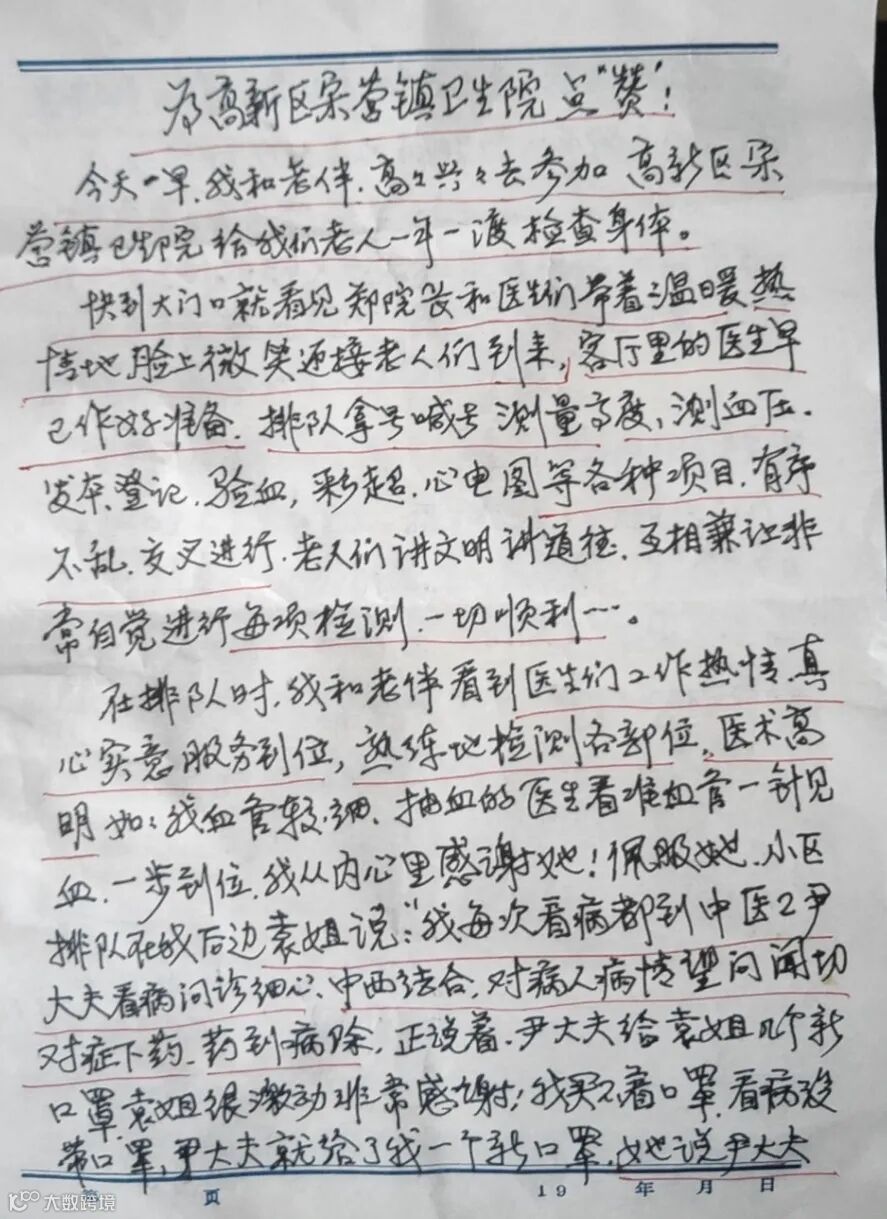 为高新区朵营镇卫生院点"赞"!
今天一早,我和老伴,高々兴々去参加高新区朵
营镇卫生院给我们老人一年一渡检查身体。
快到大门口就看见郑院长和医生们带着温暖热
情地脸上微笑迎接老人们到来,客厅里的医生早
已作好准备.排队拿号喊号测量高度,测血压.
发卒登记.验血,彩超.心电图等各种项目.有序
不乱.交叉进行.老人们讲文明讲道德.互相兼让非
常自觉进行每项检测.一切顺利…。
在排队时.我和老伴看到医生们工作热情.真
心实意服务到位,熟练地检测各部位。医术高
明如:我血管较细、抽血的医生看准血管一针见
血.一步到位.我从内心里感谢她!佩服她.小区
排队在我后边袁姐说:"我每次看病都到中医2尹
大夫看病问诊细心、中西结合.对病人病情望问闻切
对症下药.药到病除.正说着.尹大夫给袁姐几个新
口罩.袁姐很激动非常感谢!我买不着口罩.看病没
带口罩,尹大夫就给了我一个新口罩.她说尹大夫
页 19 年 月 日
大数跨境